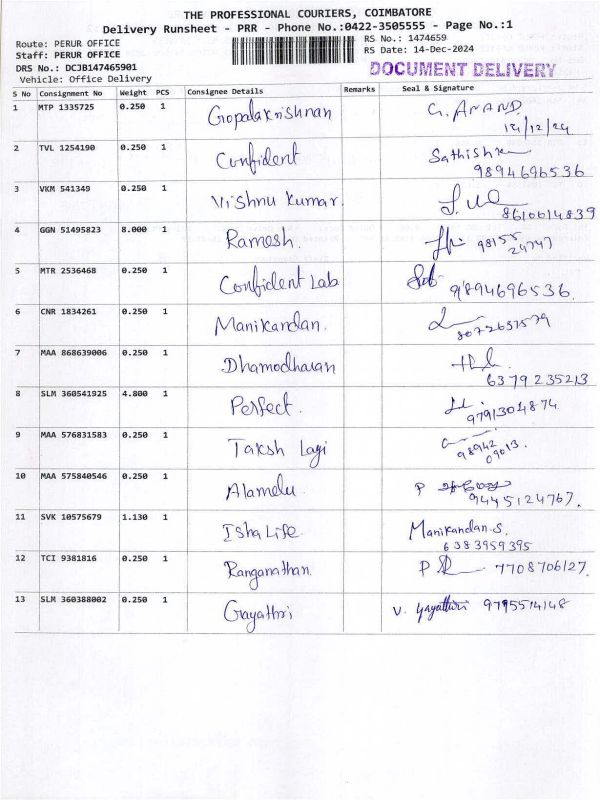 THE PROFESSIONAL COURIERS, COIMBATORE
Delivery Runsheet - PRR - Phone No.:0422-3505555 - Page No.:1
Route: PERUR OFFICE
RS No.: 1474659
Staff: PERUR OFFICE
RS Date: 14-Dec-2024
DRS No.: DCJB147465901
DOCUMENT DELIVERY
Vehicle: Office Delivery
S No Consignment No Weight PCS Consignee Details Remarks Seal & Signature
1 MTP 1335725 0.250 1 Gopalakrishnan G. ANAND
14/12/24
2 TVL 1254190 0.250 1 Confident Sathish
9894696536
3 VKM 541349 0.250 1 Vishnu Kumar.
8610614839
4 GGN 51495823 8.000 1 Ramesh. 98155
24747
5 MTR 2536468 0.250 1 Confident Lab 9894696536.
6 CNR 1834261 0.250 1 Manikandan.
7 MAA 868639006 0.250 1 Dhamodharan
6379235213
8 SLM 360541925 4.800 1 Perfect.
9791304874
9 MAA 576831583 0.250 1 Taksh
98942
09013.
10 MAA 575840546 0.250 1 Alamelu. P
9445124767.
11 SVK 10575679 1.130 1 Isha Life. Manikandan.S.
6383959395
12 TCI 9381816 0.250 1 Ranganathan. P 7708706127.
13 SLM 360388002 0.250 1 Gayathri V. Gayathri